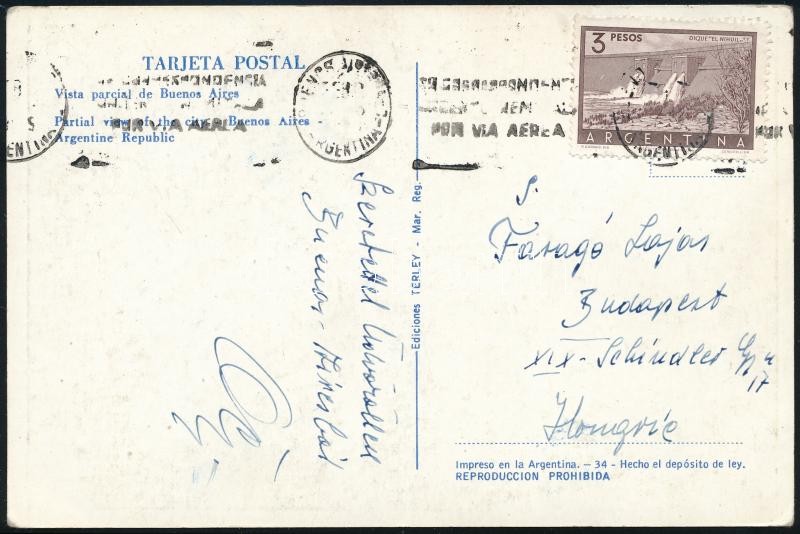 TARJETA POSTAL
Vista parcial de Buenos Aires
Partial view of the city - Buenos Aires -
Argentine Republic
POR VIA AEREA
BUENOS AIRES
ARGENTINA
POR VIA AEREA
3 PESOS
DIQUE "EL NIHUIL"
ARGENTINA
Szeretettel üdvözöllek
Buenos-Airesből
Ediciones TERLEY - Mar. Reg.
S.
Faragó Lajos
Budapest
XIX. Schindler Gy u
17
Hongrie
Impreso en la Argentina. – 34 - Hecho el depósito de ley.
REPRODUCCION PROHIBIDA